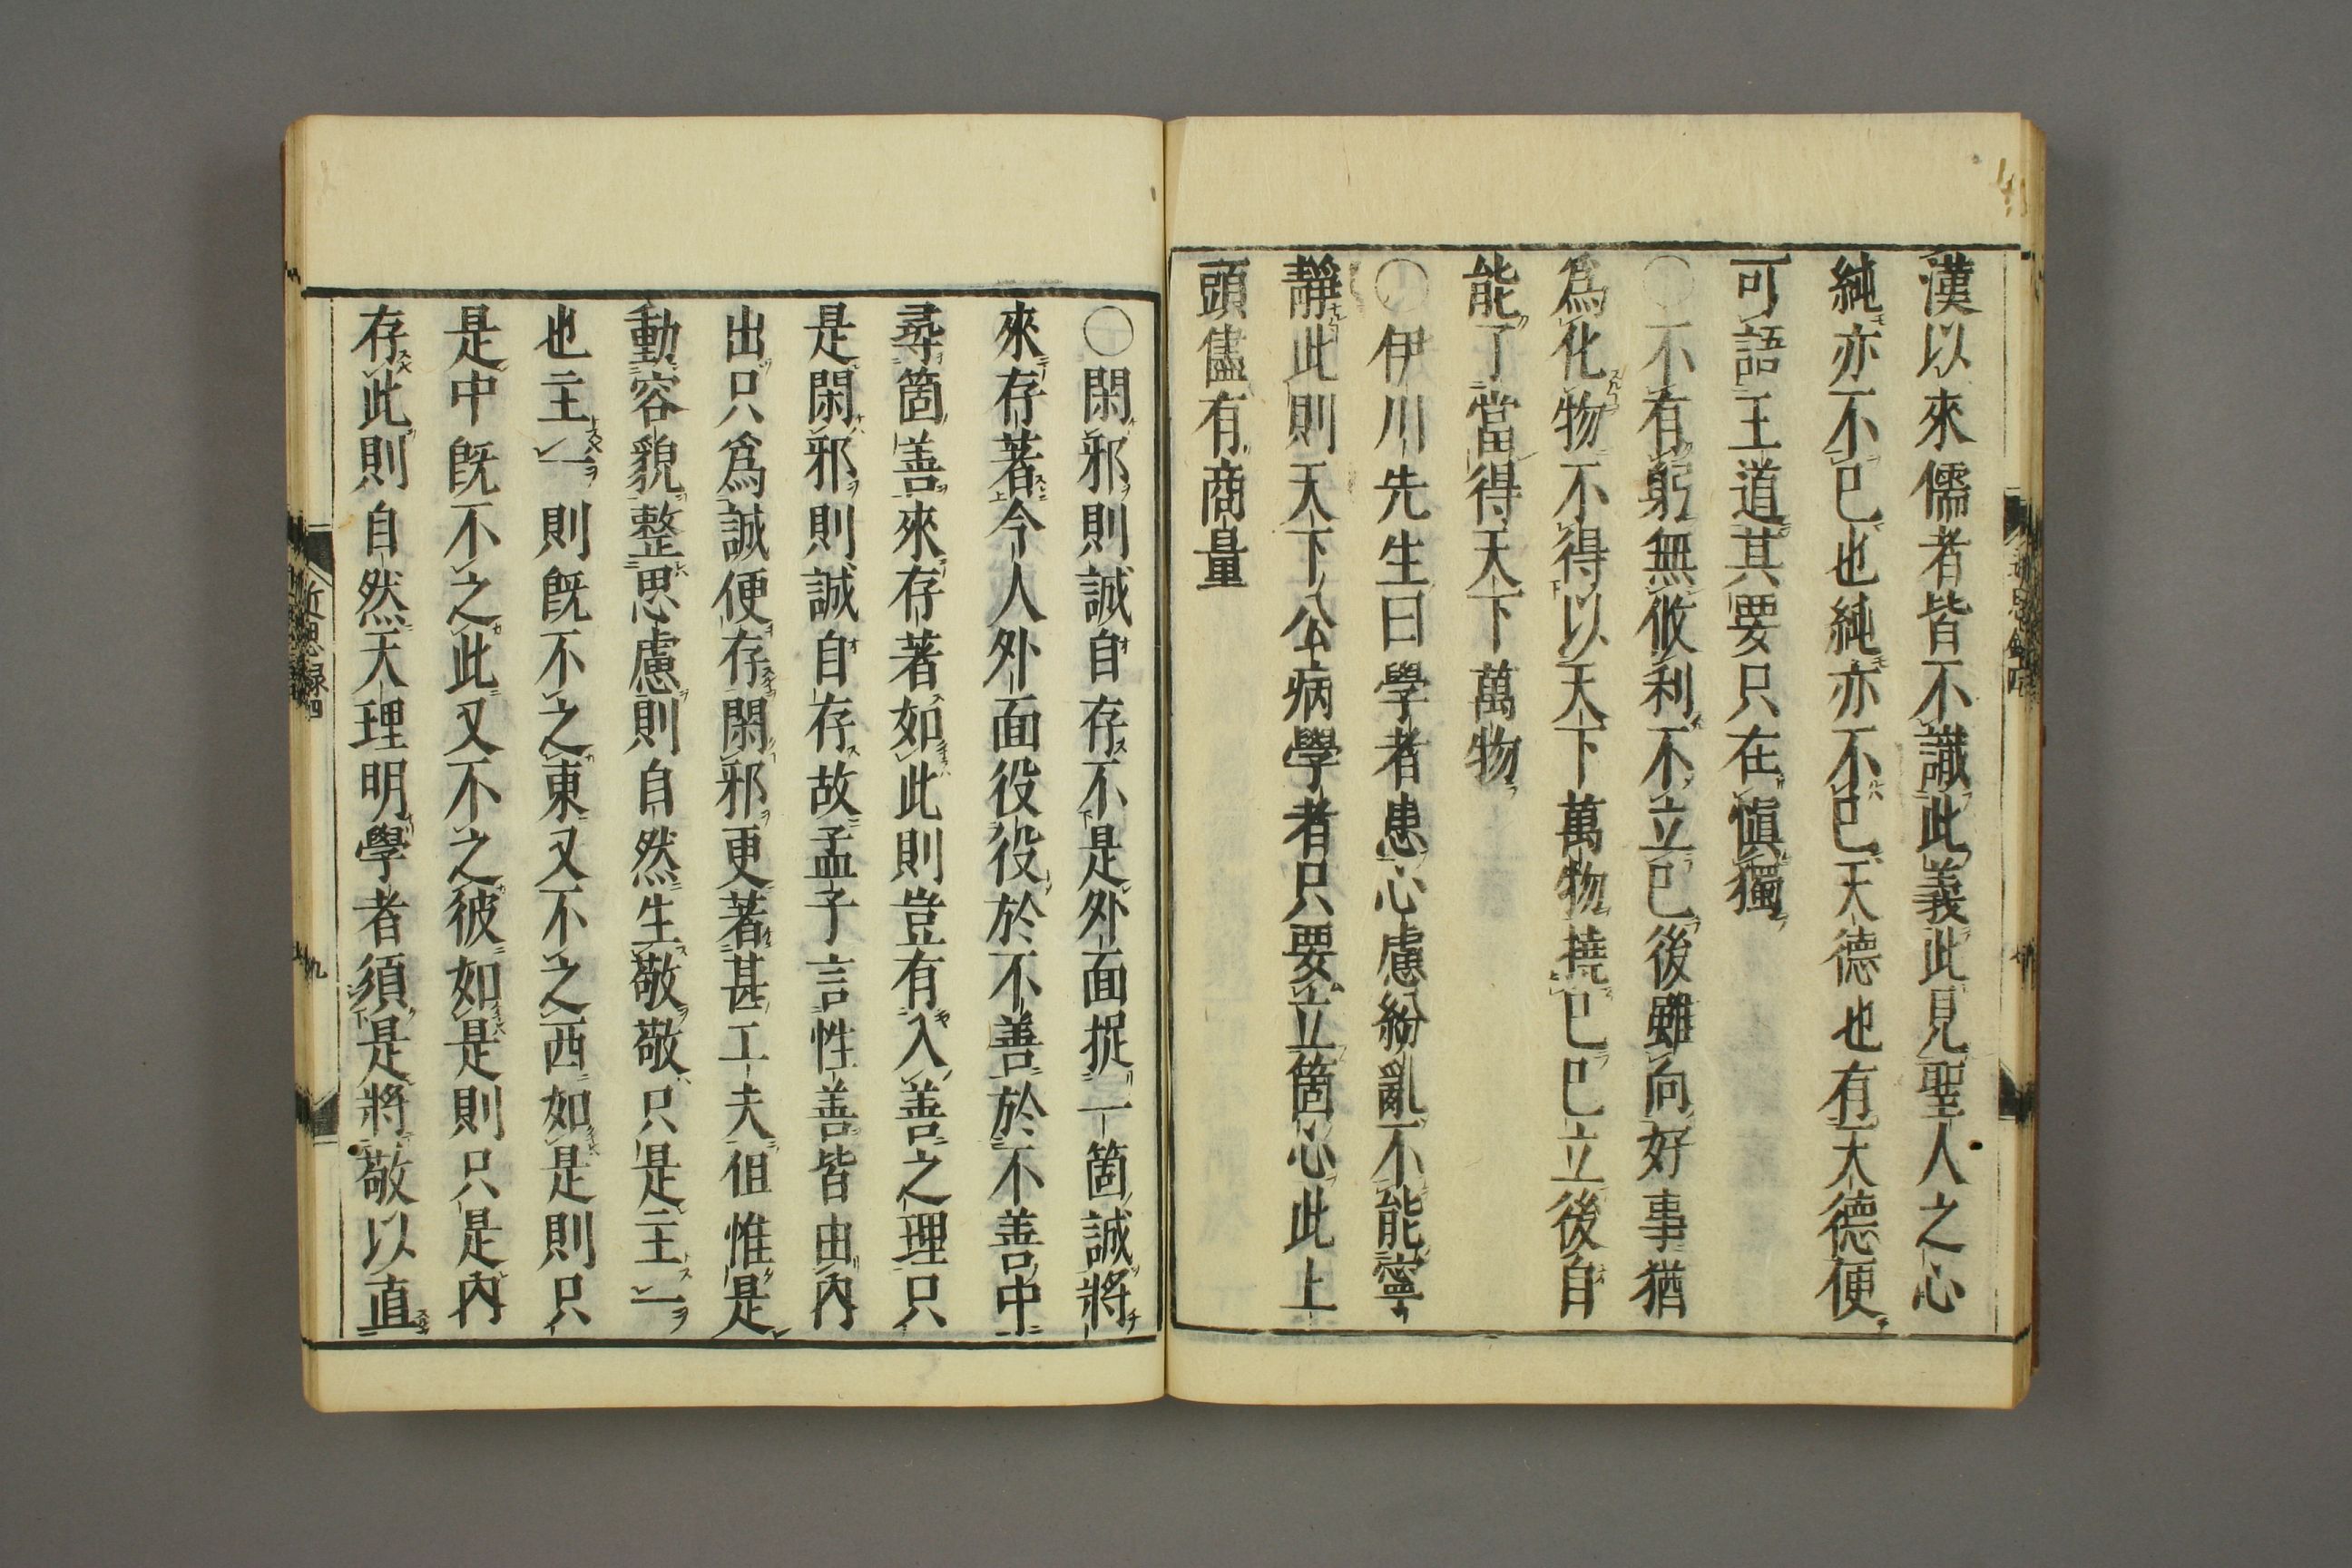 漢以來儒者皆不識此義此見聖人之心
純亦不已也純亦不已天德也有天德便
可語王道其要只在愼獨
〇不有躬無攸利不立已後雖向好事猶
爲化物不得以天下萬物撓已已立後自
能了當得天下萬物
〇伊川先生曰學者患心慮紛亂不能寧
靜此則天下公病學者只要立箇心此上
頭儘有商量
〇閑邪則誠自存不是外面捉一箇誠將
來存著今人外面役役於不善於不善中
尋箇善來存著如此則豈有入善之理只
是閑邪則誠自存故孟子言性善皆由內
出只爲誠便存閑邪更著甚工夫但惟是
動容貌整思慮則自然生敬敬只是主一
也主一則既不之東又不之西如是則只
是中既不之此又不之彼如是則只是內
存此則自然天理明學者須是將敬以直
近思録四
九